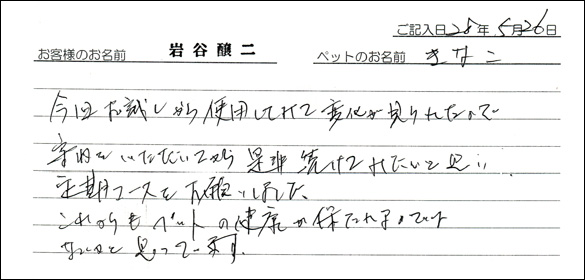 ご記入日 28年 5月26日
お客様のお名前 岩谷 醸二 ペットのお名前 きなこ
今回お試しから使用してみて変化が見られたので
をいただいてから是非続けてみたいと思い
定期コースをお願いしました。
これからもペットの健康が保たれ
と思っています。